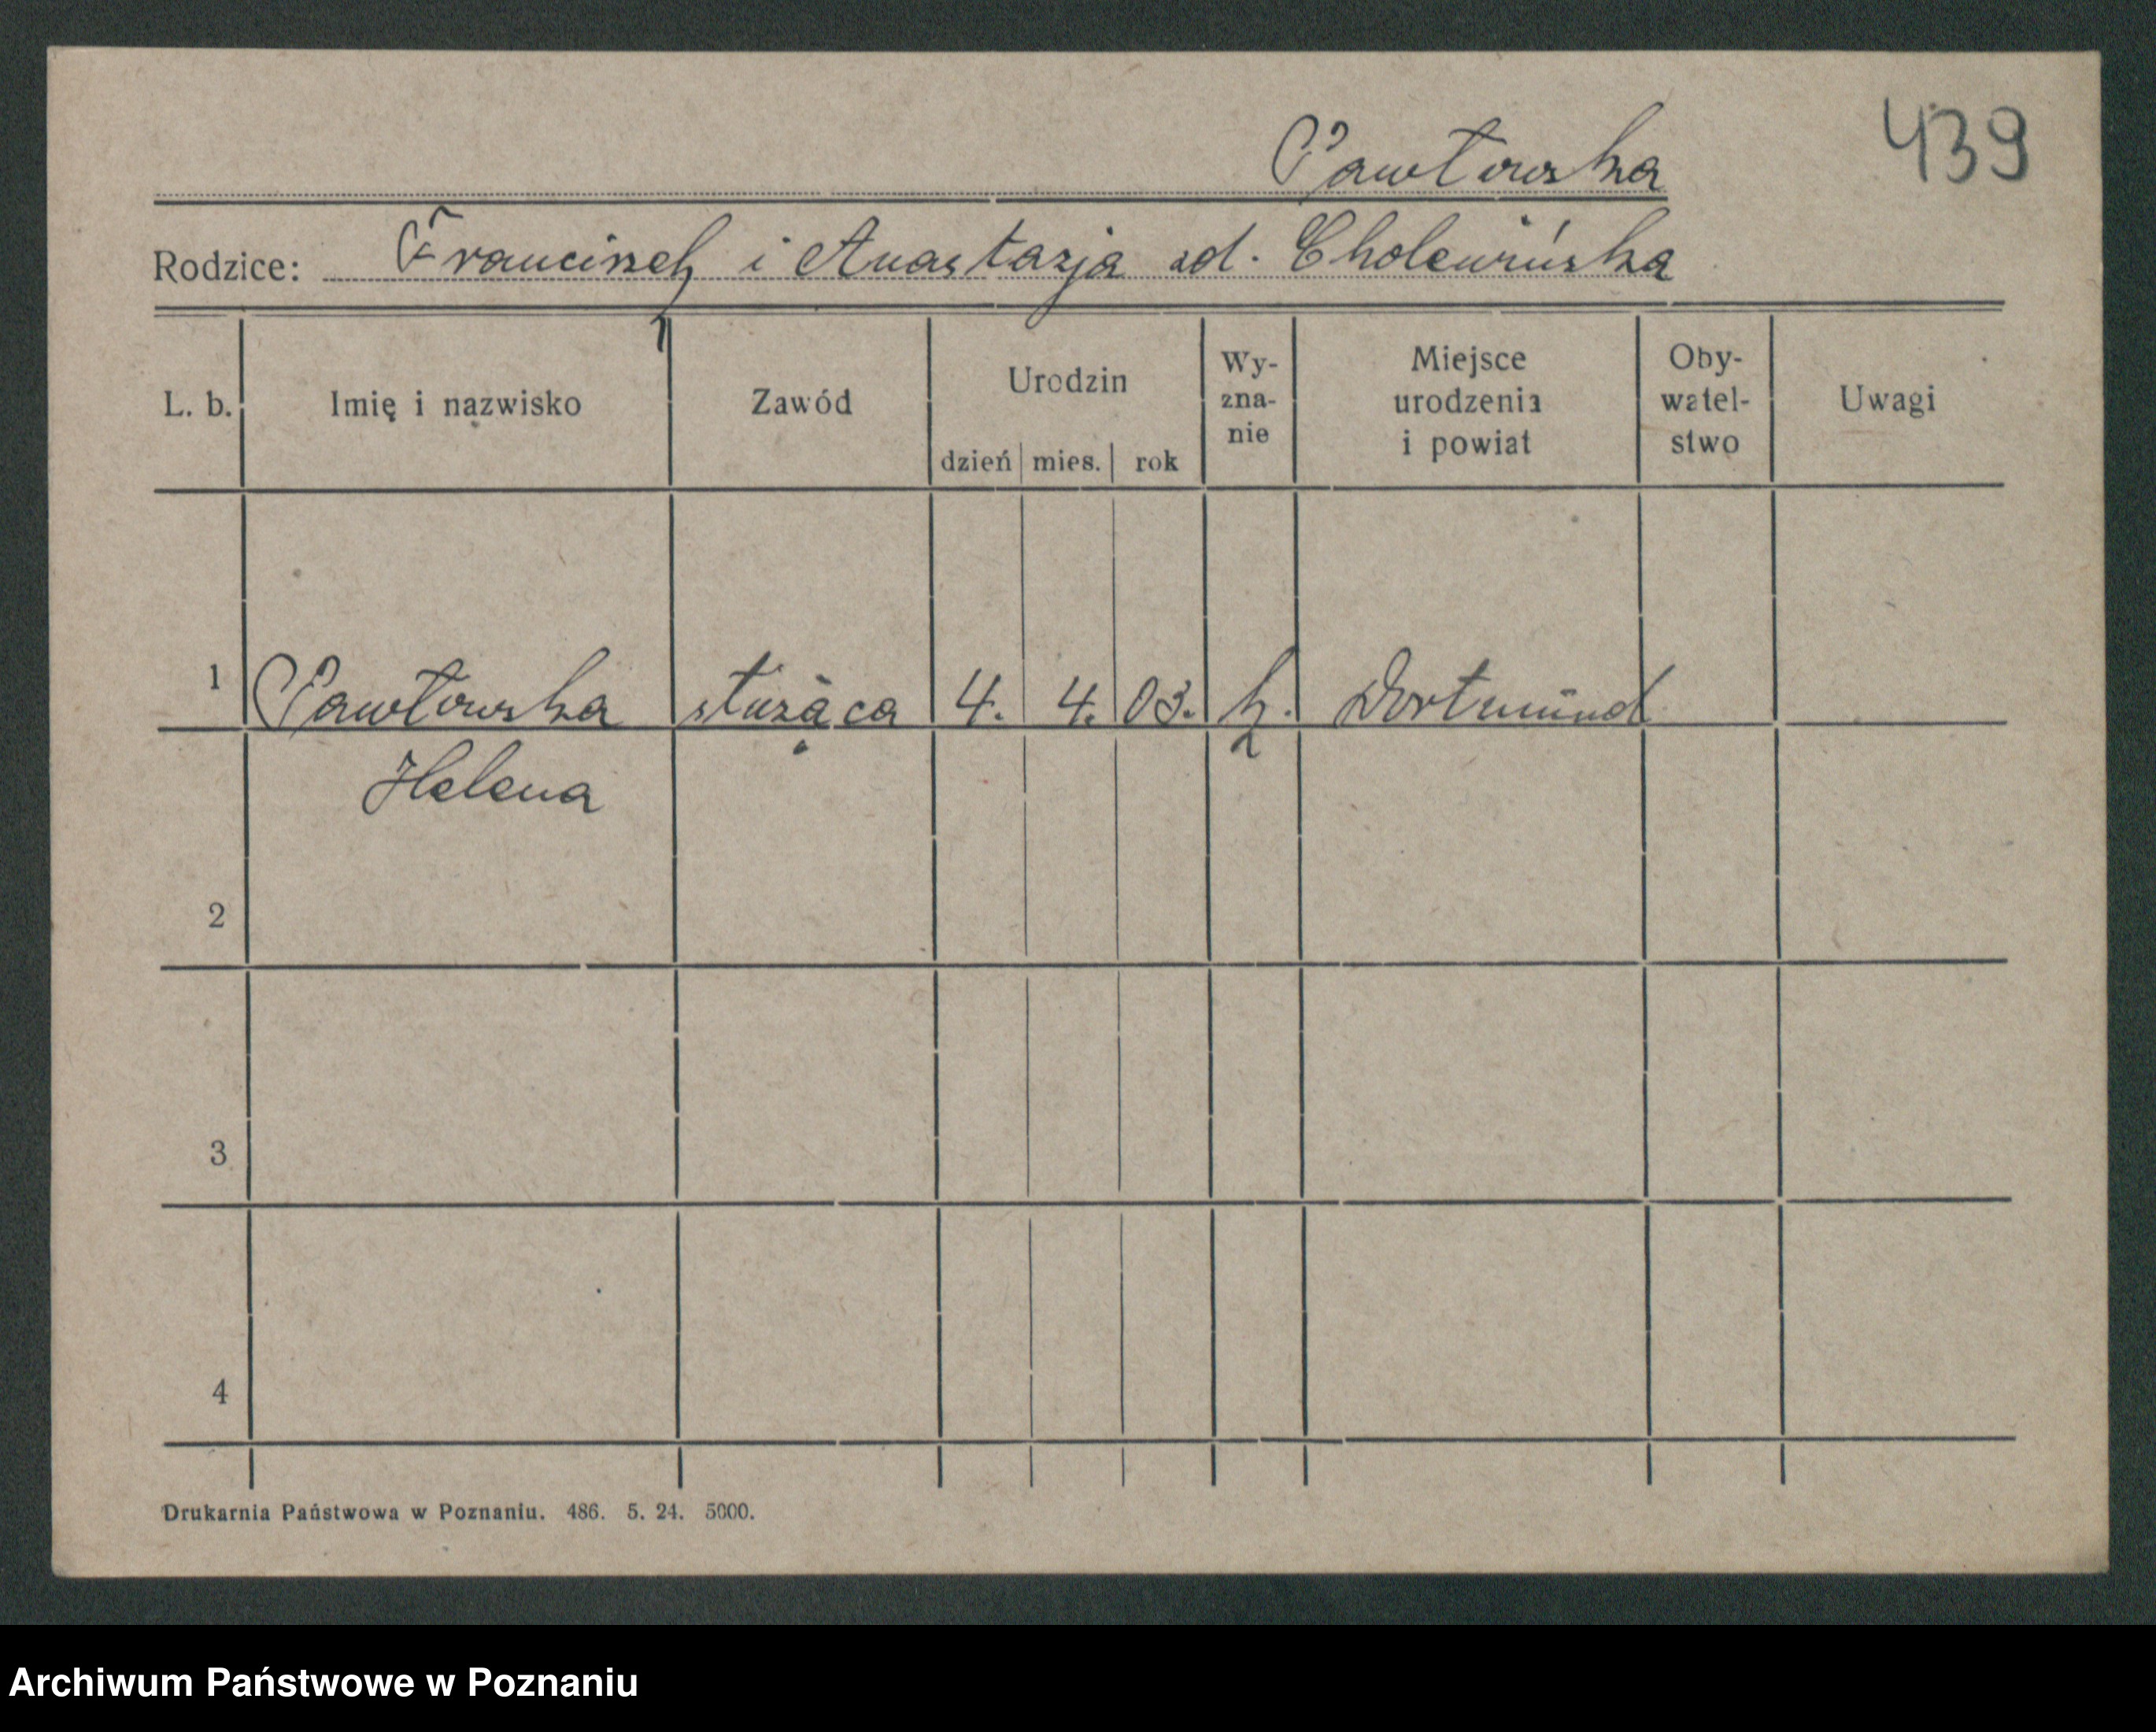 439
Pawłowska
Rodzice: Franciszek i Anastazja zd. Cholewińska
L. b. Imię i nazwisko Zawód Urodzin dzień mies. rok Wy-zna-nie Miejsce urodzenia i powiat Oby-watel-stwo Uwagi
1 Pawłowska służąca 4. 4. 03. k. Dortmund
Helena
2
3
4
Drukarnia Państwowa w Poznaniu. 486. 5. 24. 5000.
Archiwum Państwowe w Poznaniu